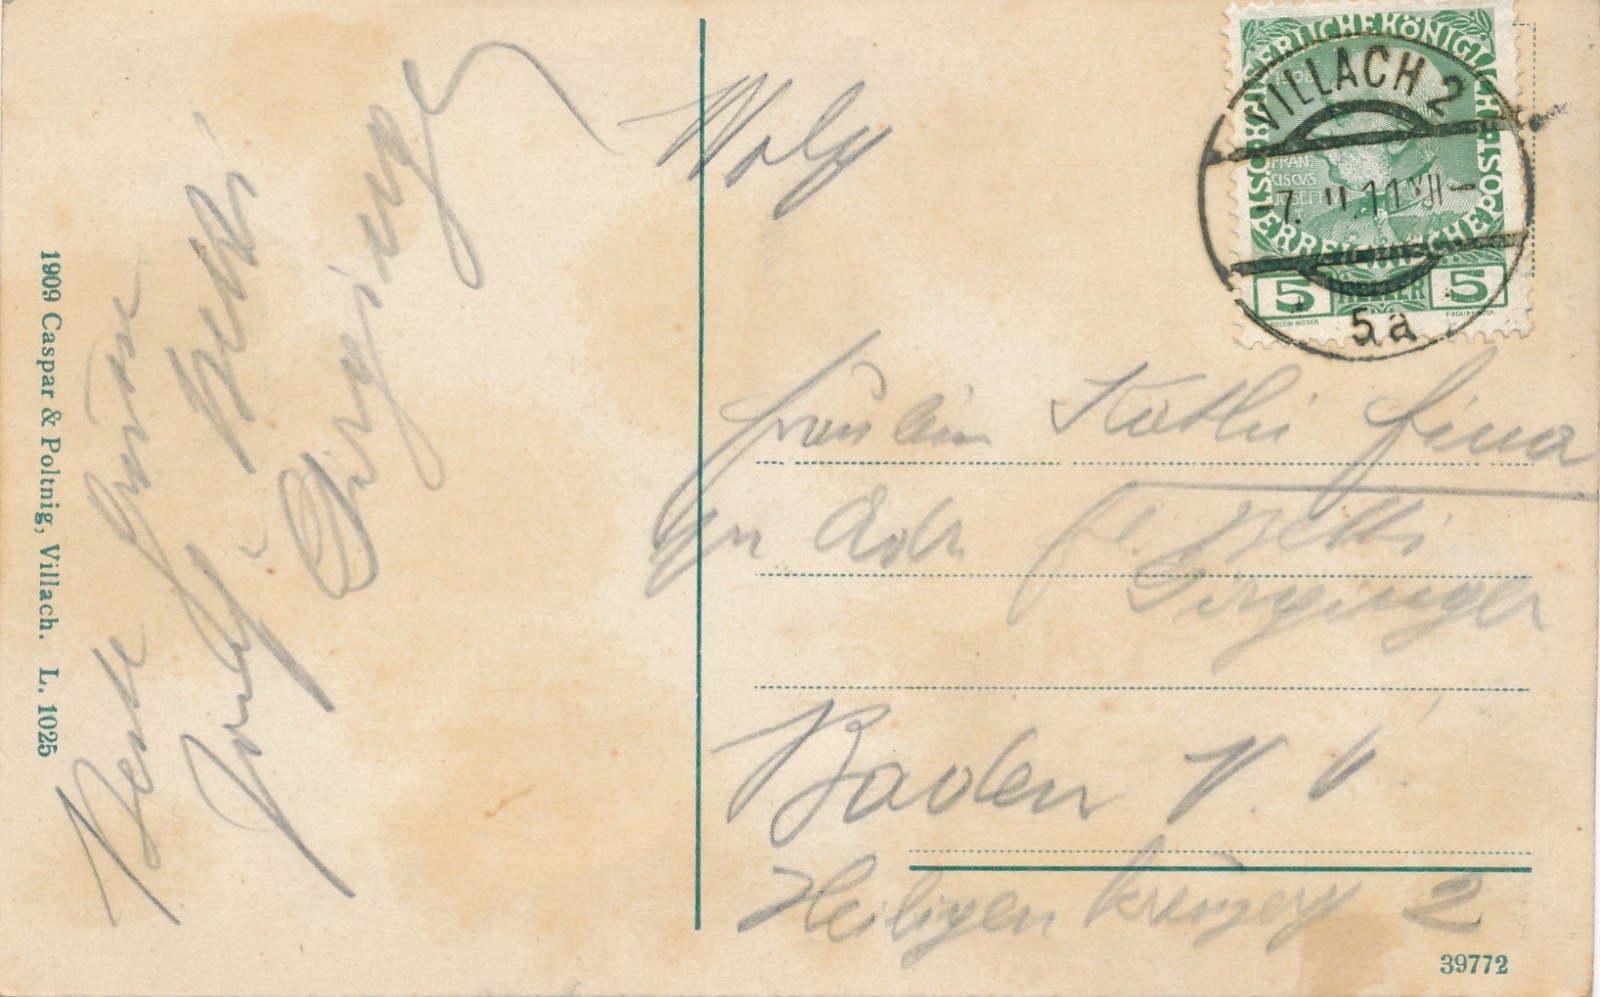 1909 Caspar & Poltnig, Villach. L. 1025
Beste Grüsse
Netti
Girginger
Wolf
KAISERLICHE KÖNIGLICHE ÖSTERREICHISCHE POST
1908
FRAN
CISCVS
JOSEPH
5 HELLER 5
VILLACH 2
-7. II. 11 VII-
5a
Fräulein Kathi
per Adr Fr. Netti
Girginger
Baden N. Ö
Heiligenkreuzerg 2
39772